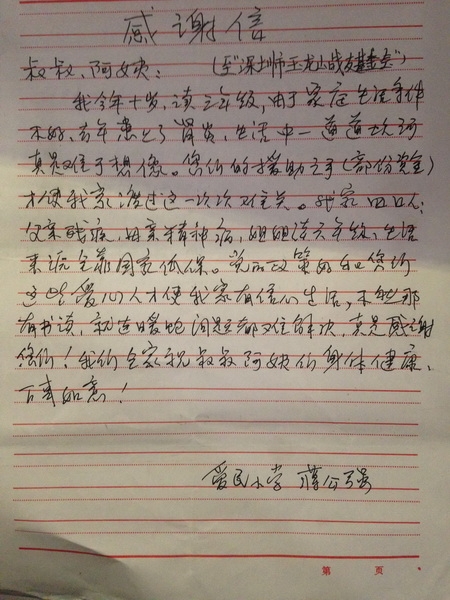 感谢信
叔叔、阿姨：（至"深圳市玉龙山战友基金会"）
我今年十岁，读三年级，由于家庭生活条件
不好，去年患上了肾炎，生活中一道道坎坷
真是难于想像。您们的援助之手（部份资金）
才使我家渡过这一次次难关。我家四口人：
父亲残疾，母亲精神病，姐姐读六年级，生活
来源全靠国家低保。党的政策好和您们
这些爱心人才使我家有信心生活，不然那
有书读，就连温饱问题都难解决，真是感谢
您们！我们全家祝叔叔阿姨们身体健康、
万事如意！
爱民小学 蒋
第 页